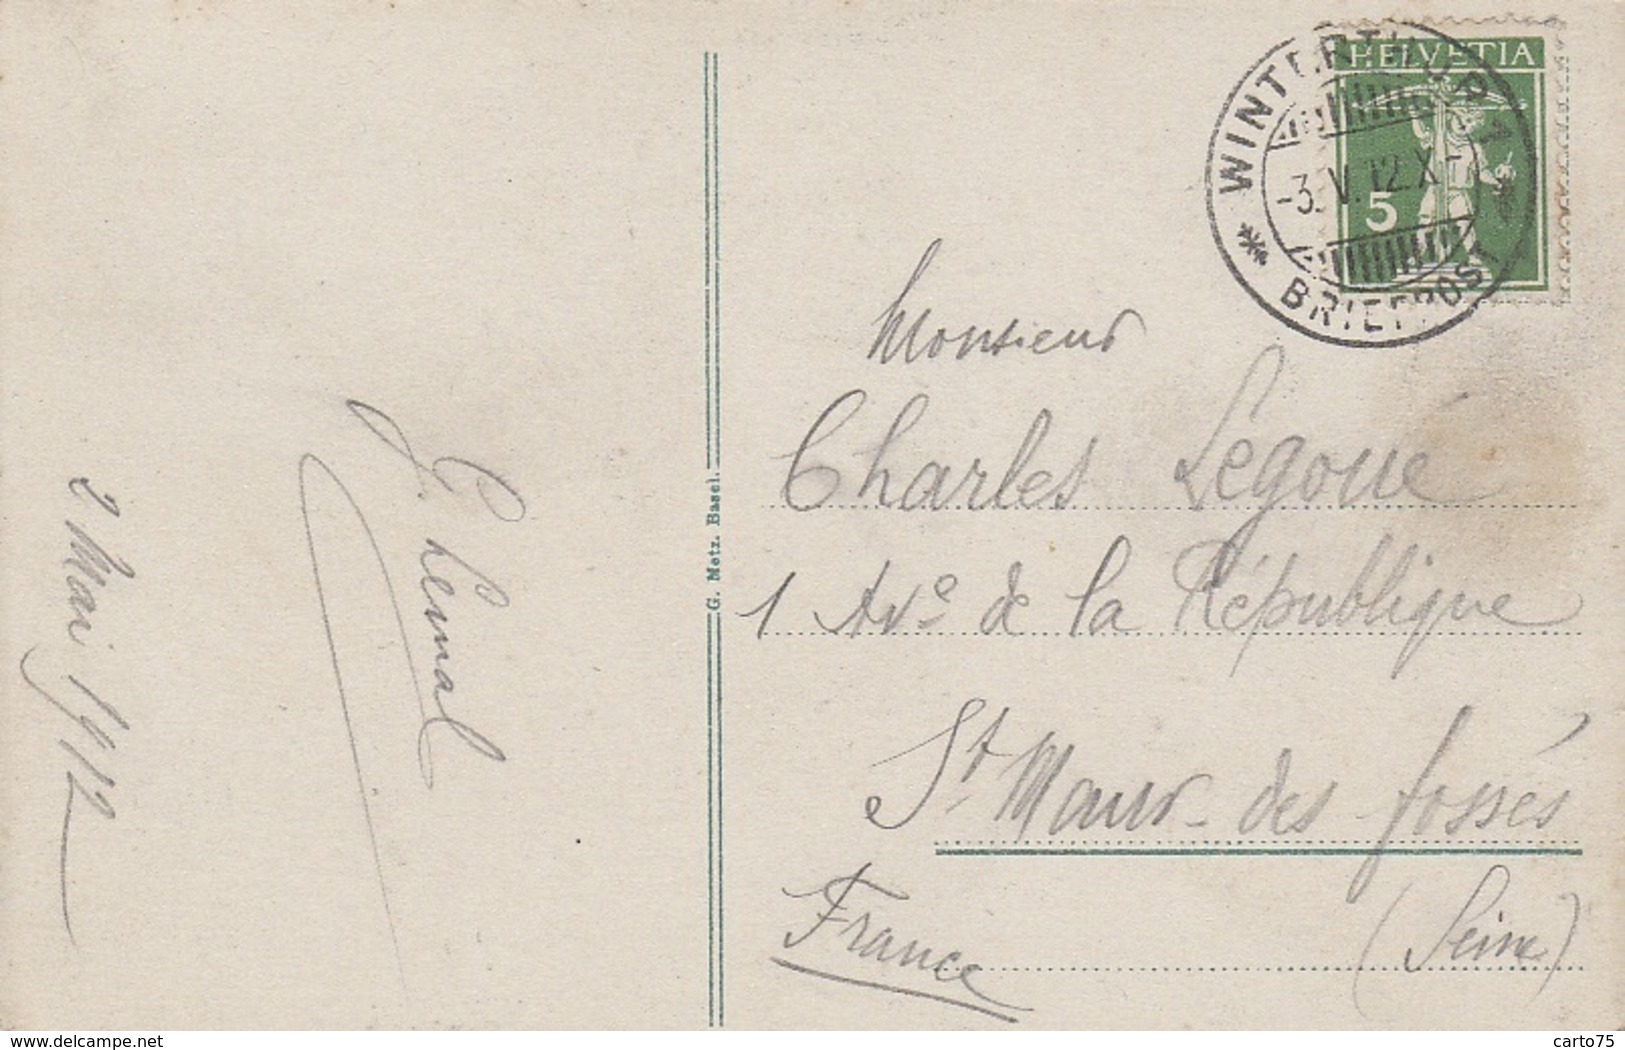 HELVETIA
5
WINTERTHUR 1
-3.V.12.X-
BRIEFPOST
Monsieur
Charles Legoué
1 Ave de la République
St Maur-des fossés
France (Seine)
G. Metz. Basel.
2 Mai 1912
delcampe.net
carto75